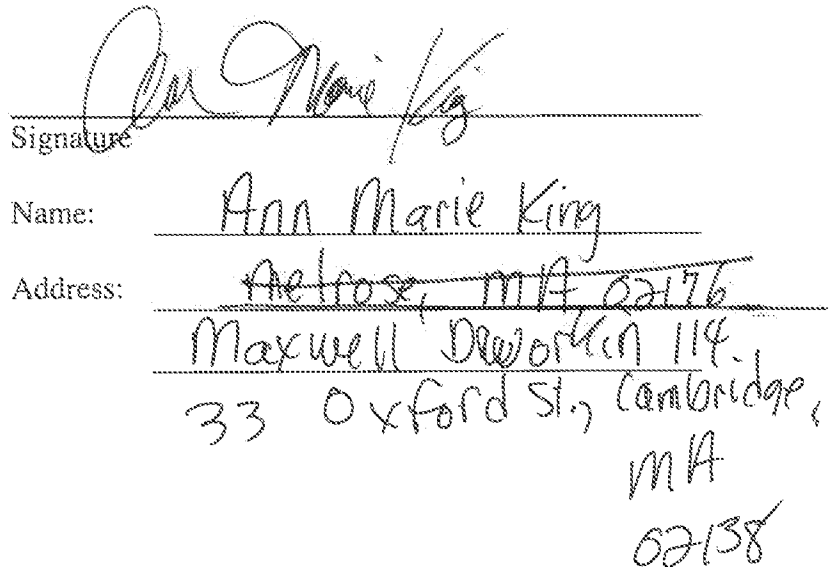 Ann Marie King
Signature
Name: Ann Marie King
Address: Melrose, MA 02176
Maxwell Dworkin 114
33 Oxford St., Cambridge,
MA
02138